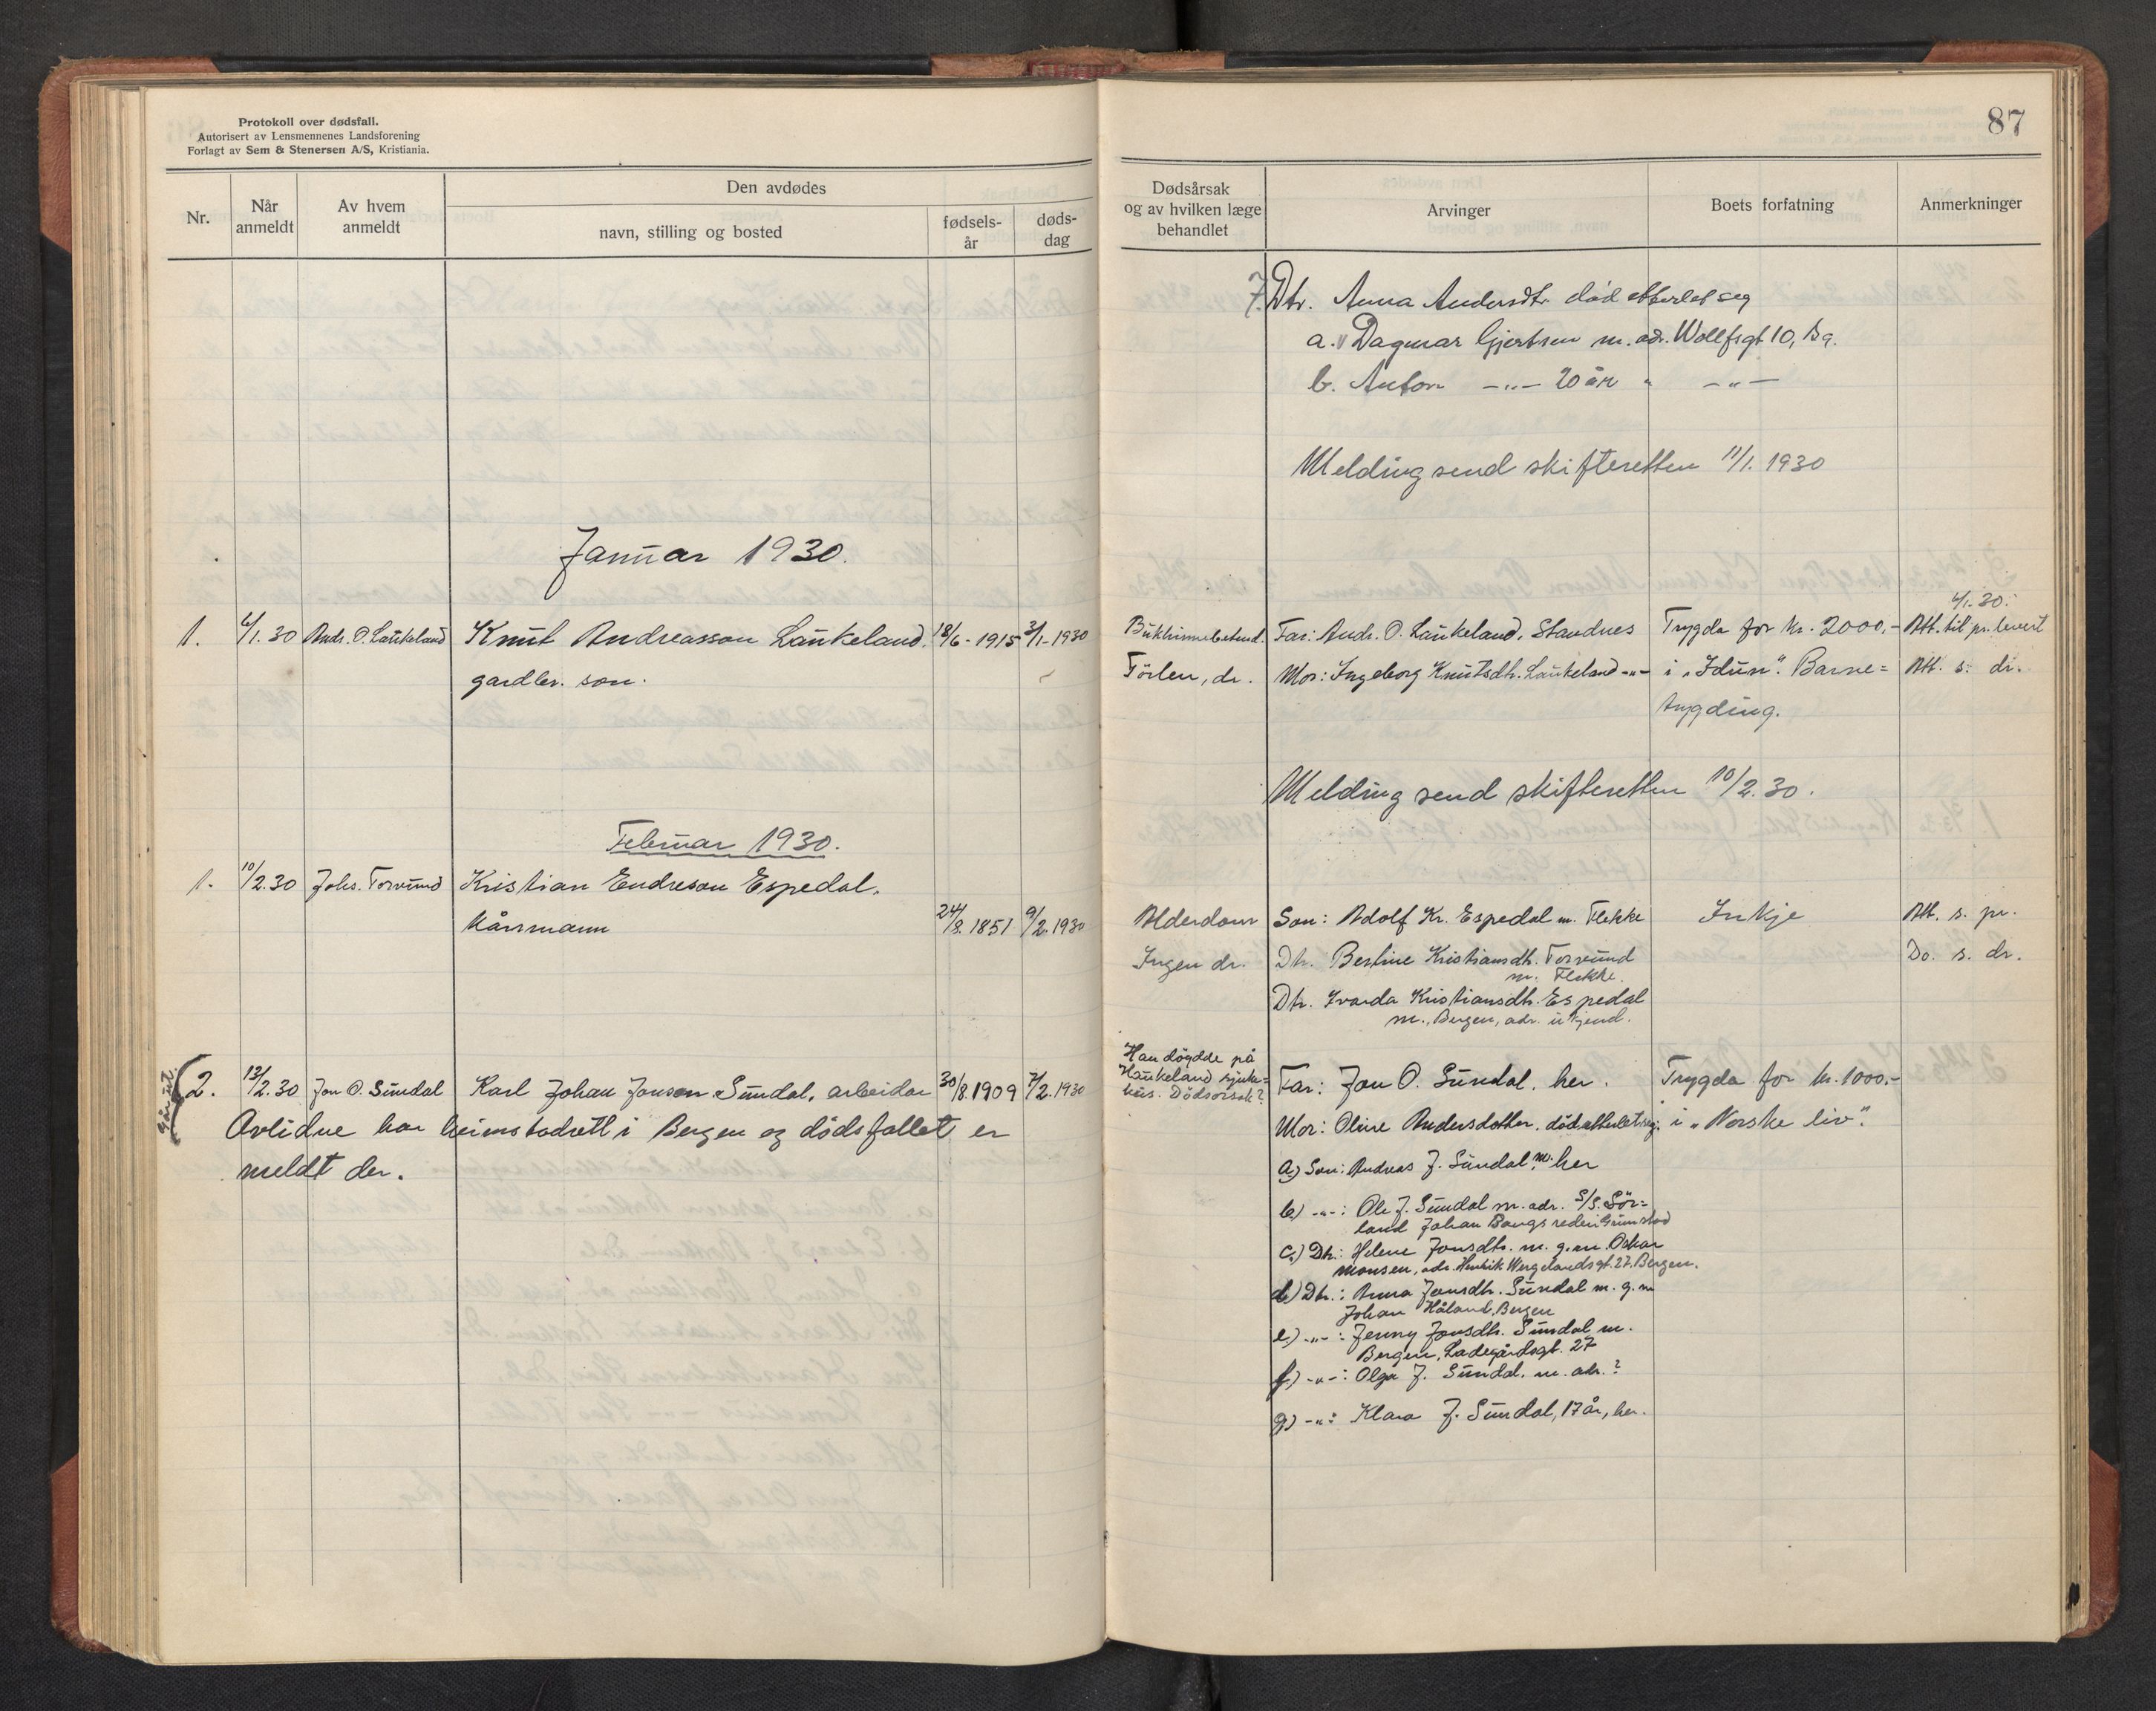 Protokoll over dødsfall.
Autorisert av Lensmennenes Landsforening
Forlagt av Sem & Stenersen A/S, Kristiania.
Nr.
Når anmeldt
Av hvem anmeldt
Den avdødes
navn, stilling og bosted
fødsels-år
døds-dag
Januar 1930.
1. 4/1.30 Andr. O. Laukeland Knut Andreasson Laukeland, 18/6-1915 3/1-1930
gardbr. son.
Februar 1930.
1. 10/2.30 Johs. Torvund Kristian Endreson Espedal,
Kårmann 24/8.1851 9/2.1930
2. 13/2.30 Jon O. Sundal Karl Johan Jonson Sundal, arbeidar 30/8.1909 7/2.1930
Avlidne har heimstadrett i Bergen og dødsfallet er
meldt der.
87
Dødsårsak og av hvilken læge behandlet
Arvinger
Boets forfatning
Anmerkninger
7. Dtr. Anna Andersdtr død etterlet seg
a. Dagmar Gjertsen m. adr. Wollfsgt. 10, Bg.
b. Anton -"- 20 år " -"-
Melding send skifteretten 11/1. 1930
4/1.30.
Bukhinnebetend. Far: Andr. O. Laukeland, Standnes Trygda for kr. 2000,- Att. til pr. levert
Törlen, dr. Mor: Ingeborg Knutsdtr. Laukeland -"- i "Idun". Barne= Att. s. dr.
trygding.
Melding send skifteretten 10/2.30.
Alderdom Son: Adolf Kr. Espedal m. Flekke Inkje Att. s. pr.
Ingen dr. Dtr. Bertine Kristiansdtr. Torvund Do. s. dr.
m. Flekke.
Dtr. Ivarda Kristiansdtr. Espedal
m., Bergen, adr. ukjend.
Han döydde på
Haukeland sjuke=
hus. Dödsorsak?
Far: Jon O. Sundal, her. Trygda for kr. 1000.-
Mor: Oline Andersdotter, död etterlet seg: i "Norske liv".
a) Son: Andreas J. Sundal, m. her
b) -"-: Ole J. Sundal m. adr. S/S. Sör=
land Johan Bangs rederi Grimstad
c.) Dtr.: Helene Jonsdtr. m. g.m. Oskar
Monsen, adr. Henrik Wergelandsgt. 27. Bergen.
d) Dtr.: Anna Jonsdtr. Sundal m. g. m
Johan Håland, Bergen
e) -"-: Jenny Jonsdtr. Sundal m.
Bergen, Ladegårdsgt. 27
f) -"-: Olga J. Sundal. m. adr.?
g) -"-: Klara J. Sundal, 17 år, her.